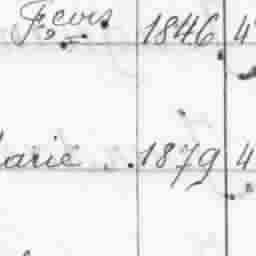 Fcois 1846 4
arie 1879 4